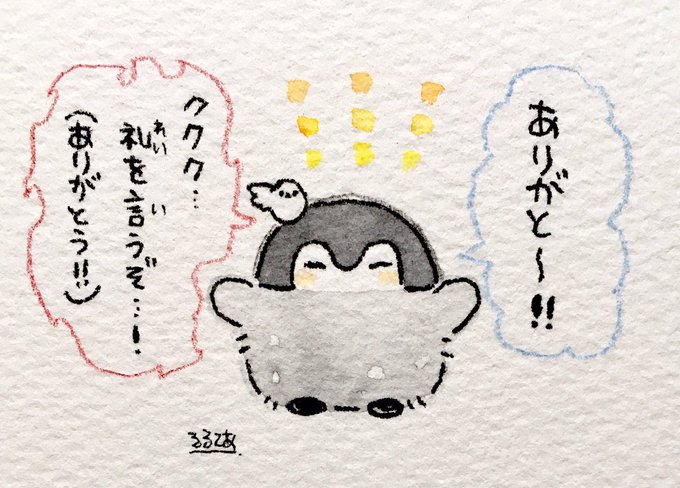 ありがと〜!!
ククク…
礼を言うぞ…!
れい い
(ありがとう!!)
るるてあ